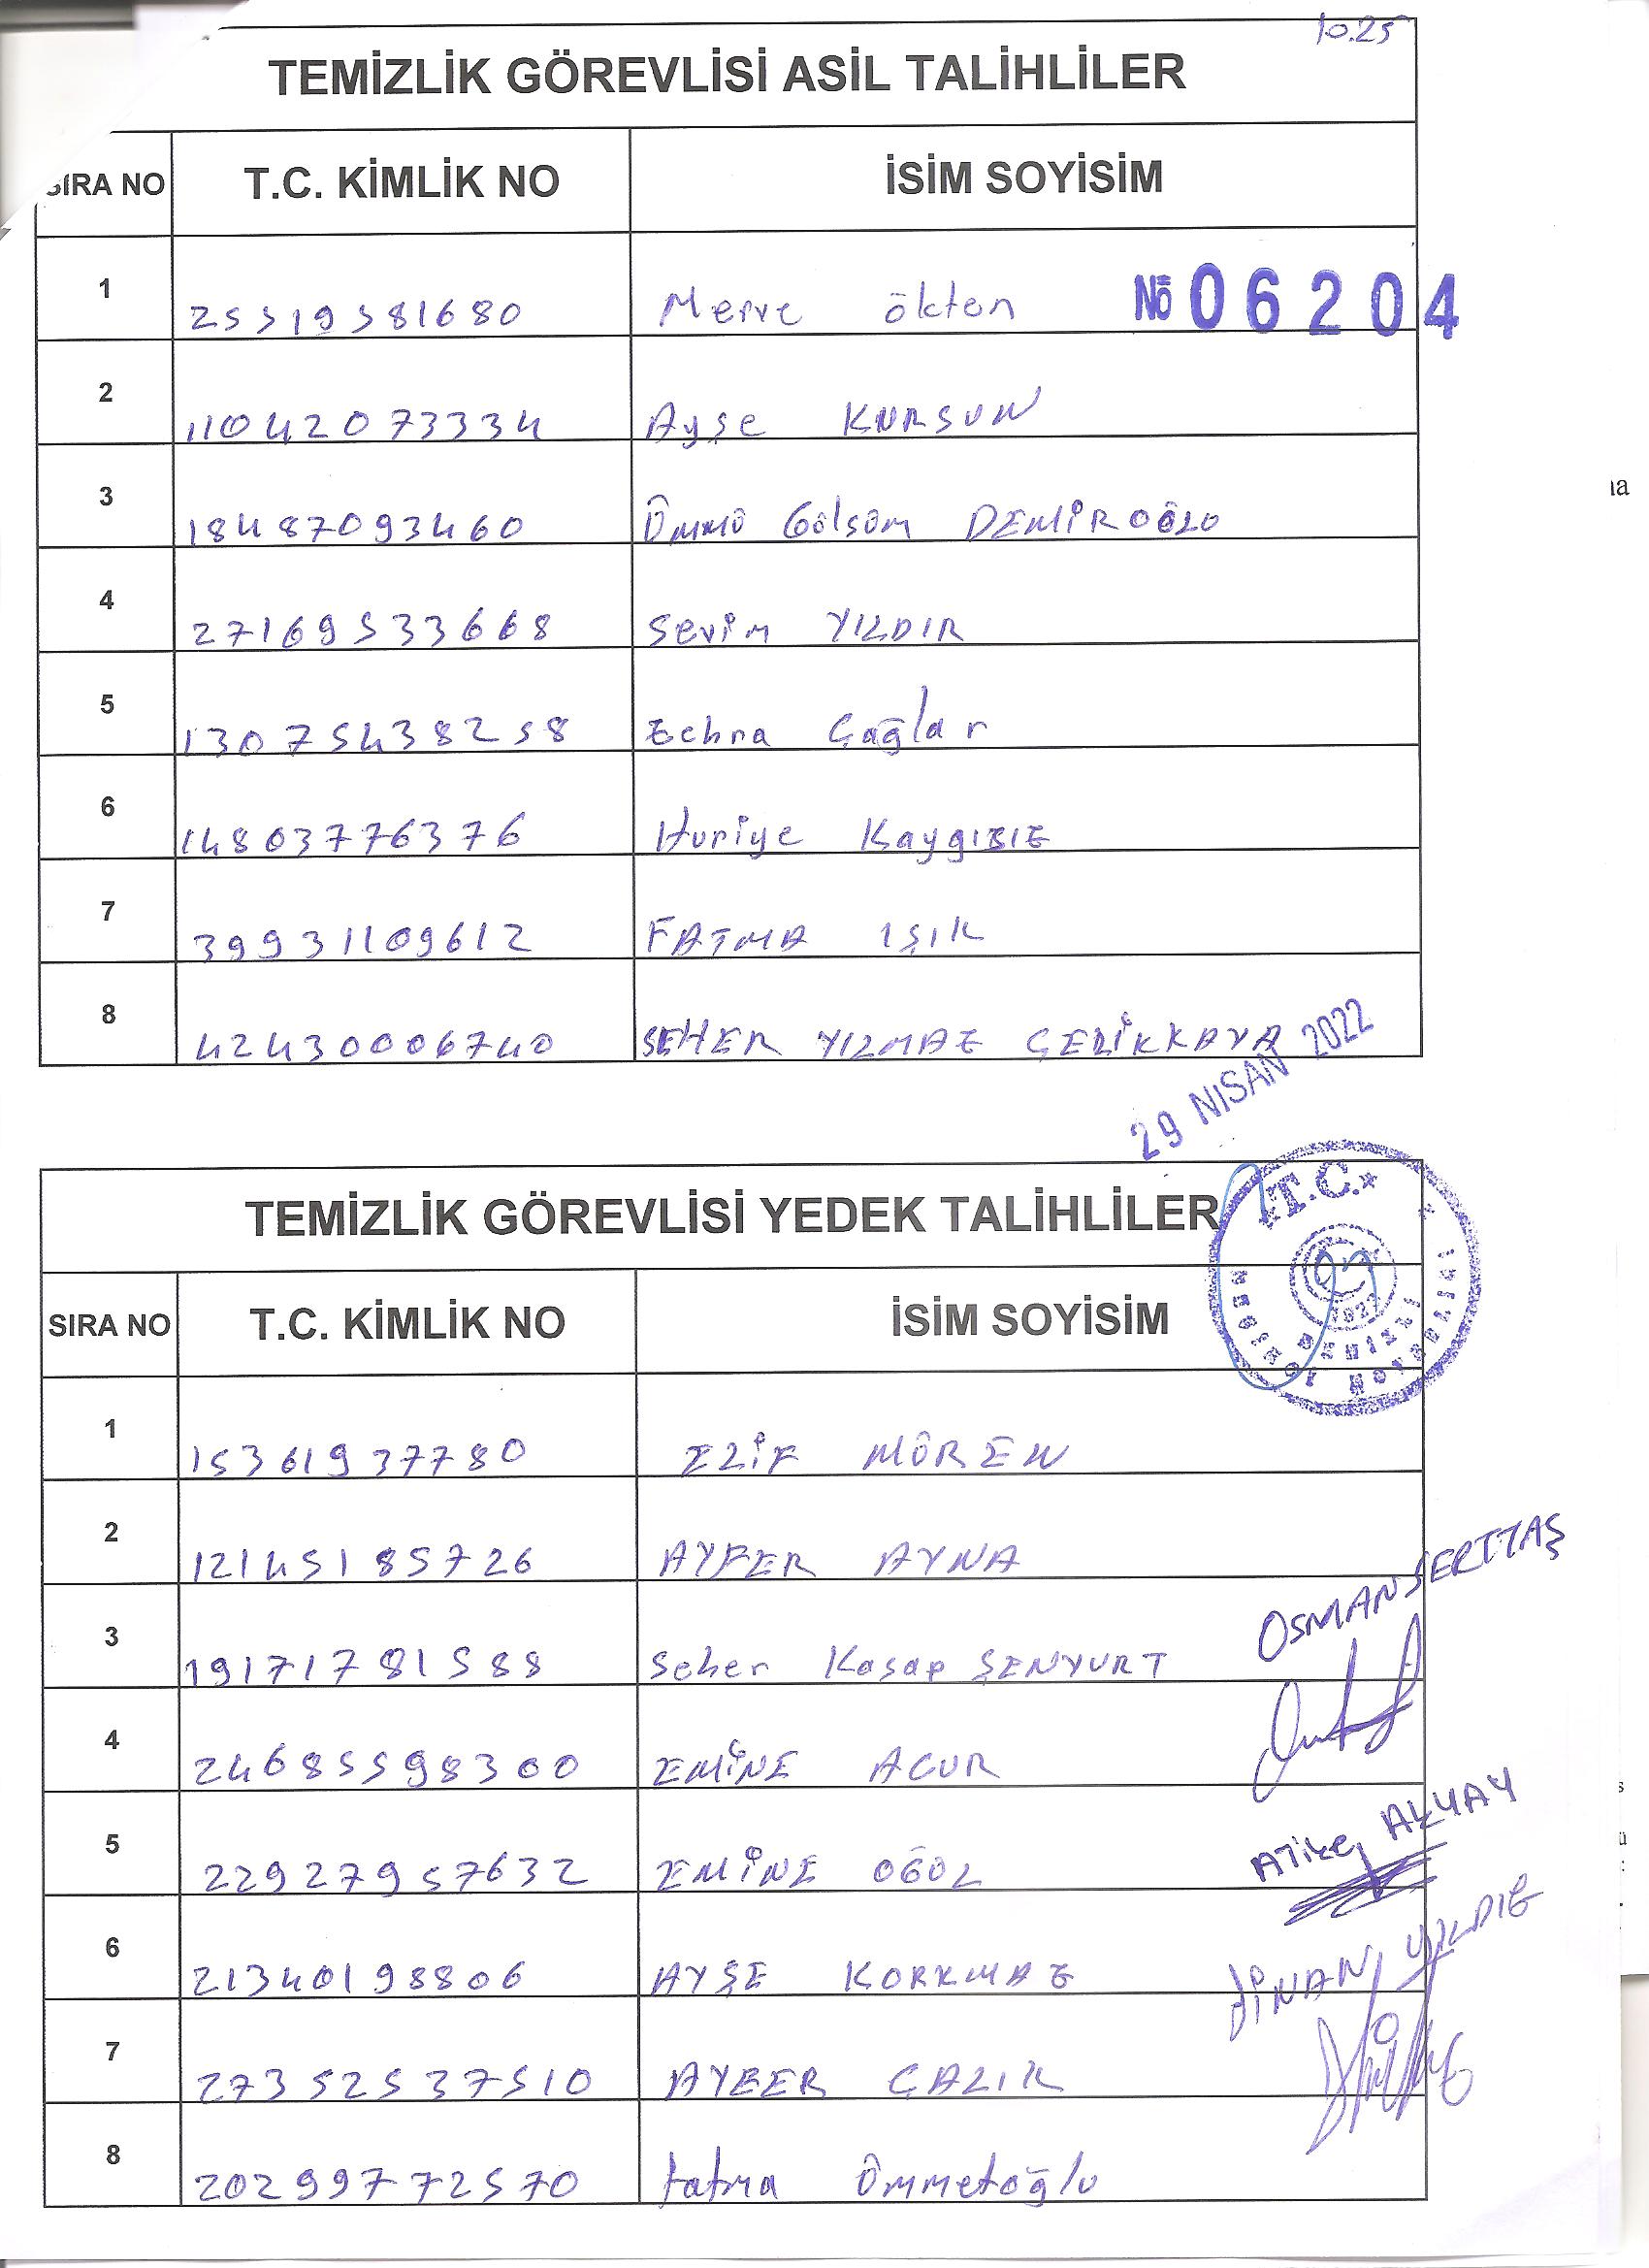 10.25
TEMİZLİK GÖREVLİSİ ASİL TALİHLİLER
SIRA NO T.C. KİMLİK NO İSİM SOYİSİM
1 25519581680 Merve ökten No 06204
2 11042073334 Ayşe KURŞUN
3 18487093460 Ümmü Gülsüm DEMİROĞLU
4 27169533668 Sevim YILDIR
5 13075438258 Çağlar
6 14803776376 Huriye Kaygısız
7 39931109612 FATMA IŞIK
8 42430006740 SEHER YILMAZ ÇELİKKAYA
29 NISAN 2022
TEMİZLİK GÖREVLİSİ YEDEK TALİHLİLER
T.C.
SIRA NO T.C. KİMLİK NO İSİM SOYİSİM
1 15361937780 ELİF MÖREN
2 12145185726 AYFER AYNA
3 19171781588 Seher Kasap ŞENYURT
OSMAN SERTTAŞ
4 24685598300 EMİNE ACUR
5 22927957632 EMİNE OĞUL
ATİKE ALYAY
6 21340198806 AYŞE KORKMAZ
7 27352537510 AYBER ÇALIK
8 20299772570 Fatma Ümmetoğlu